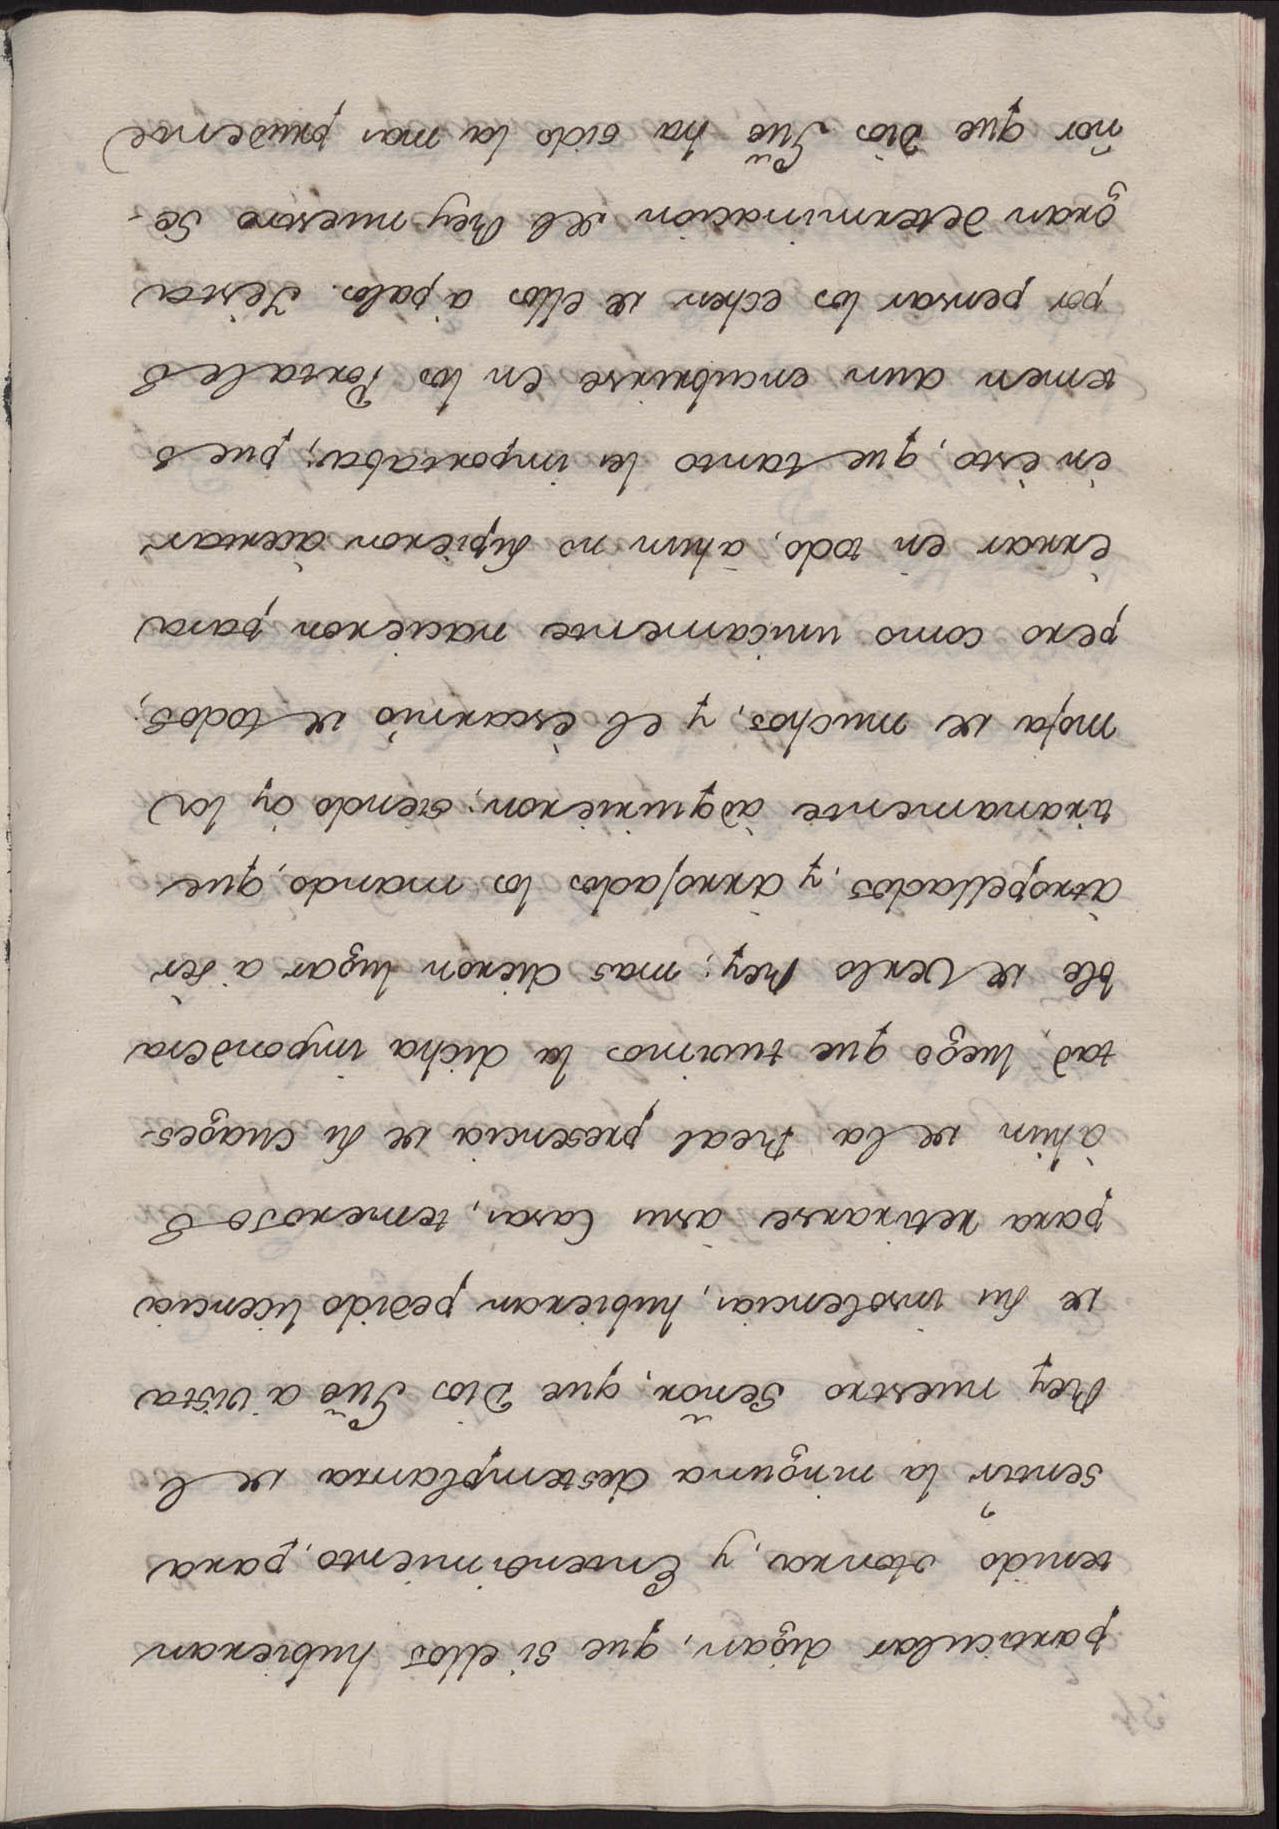 34
particular digan, que si ellos hubieran
tenido Honra, y Entendimiento, para
sentir la ninguna destemplanza de el
Rey nuestro Señor, que Dios Gue a vista
de su insolencia, hubieran pedido licencia
para retirarse asus Casas, temerosos
àhun de la Real presencia de su Mages-
tad, luego que tuvimos la dicha impondera
ble de Verlo Rey; mas dieron lugar a sèr
àtropellados, y àrrojados los mando, que
tiranamente àdquirieron; siendo òy la
mofa de muchos, y el èscarnio de todos;
pero como unicamente nacieron para
èrrar èn todo, àhun no supieron àcertar
èn èsto, que tanto les importaba; pues
temen aun encubrirse en los Portales
por pensar los echen de ellos à palos. Y esta
gran determinacion del Rey nuestro Se-
ñor que Dios Gue ha sido la mas prudente